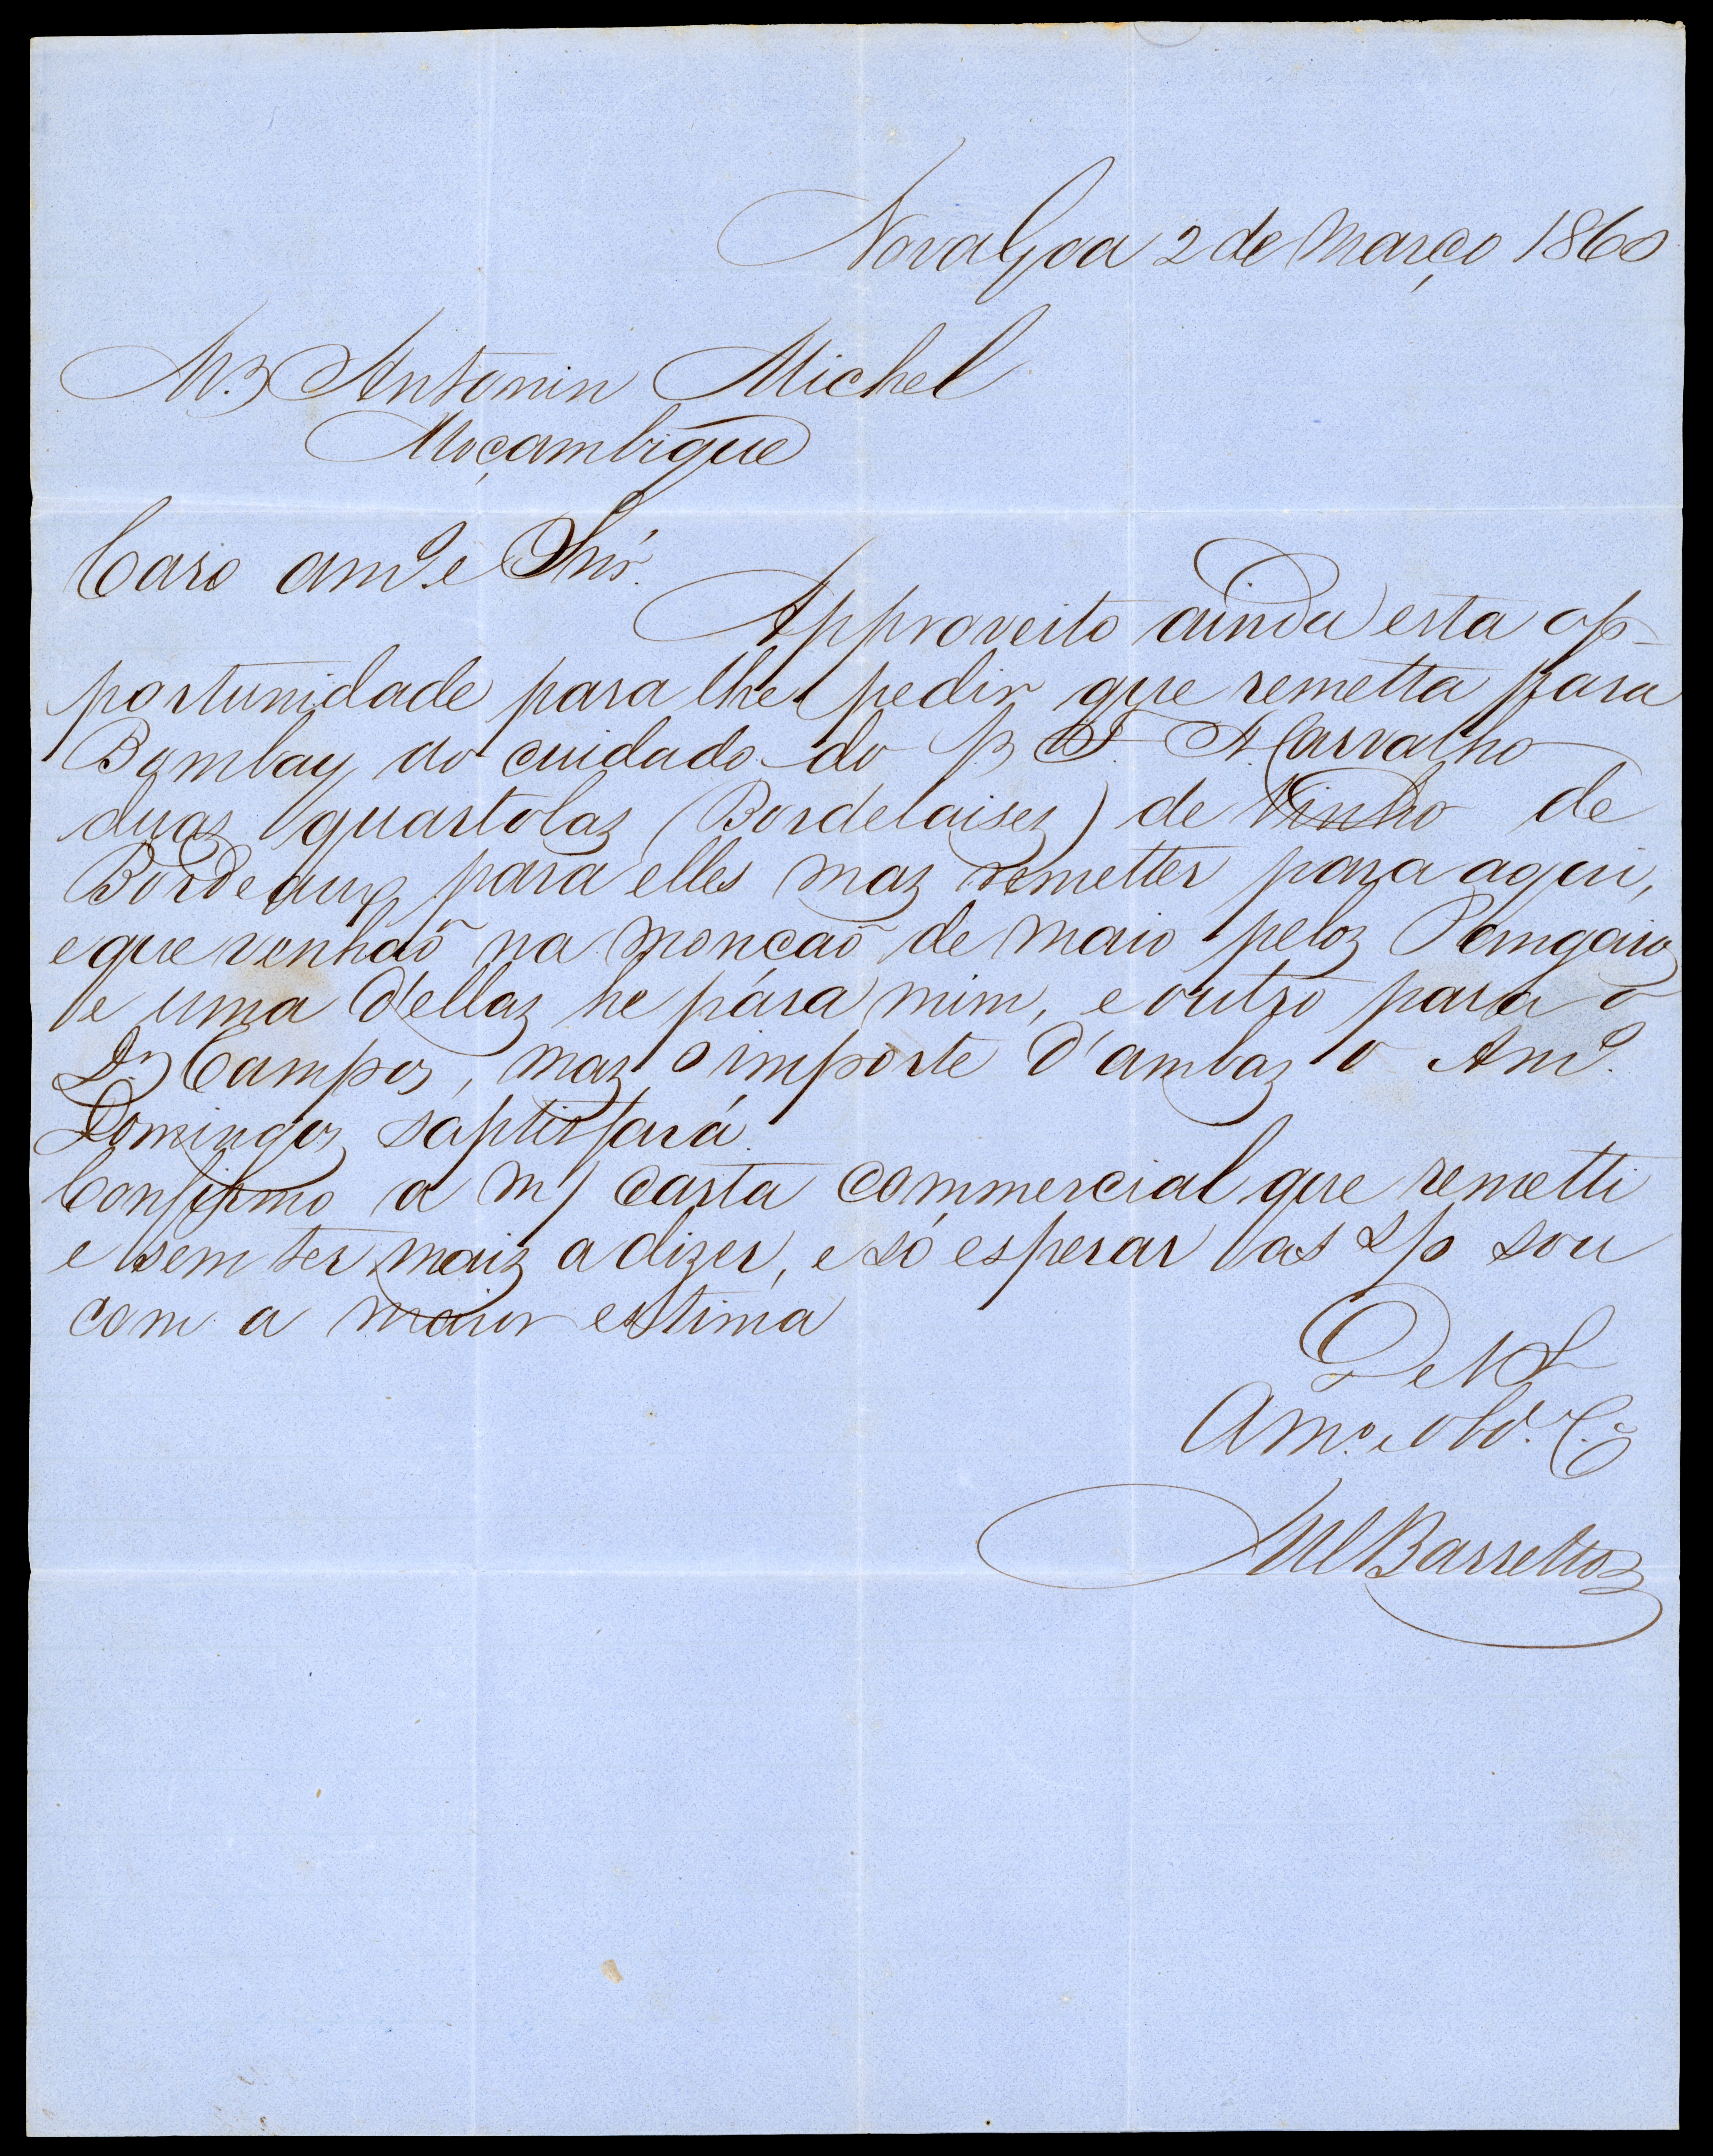 Nova Goa 2 de Março 1860
Mr. Antonin Michel
Moçambique
Caro amº. e Snr.
Approveito ainda esta op-
portunidade para lhe pedir que remetta para
Bombay ao cuidado do F. N. Carvalho
duas quartolas (Bordelaises) de Vinho de
Bordeaux para elles mas remetter para aqui,
e que venhaõ na monçaõ de Maio pelos Pamgaios
e uma d'ellas he pára mim, e outro para o
Dr. Campos, mas o importe d'ambas o Amº.
Domingos saptisfará.
Confirmo a m/ carta commercial que remetti
e sem ter mais a dizer, e só esperar as s/o sou
com a maior estima
De V S
Amº. e obdº. C.
M Barretto